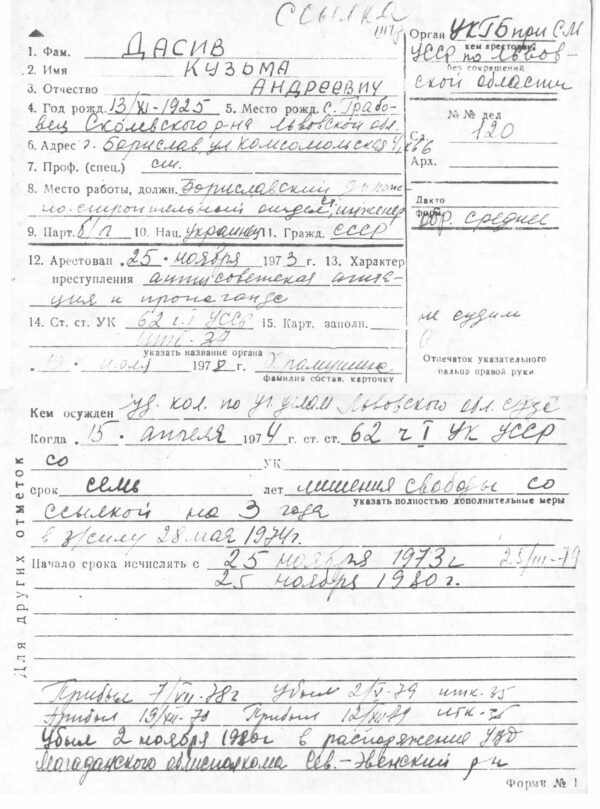 ССЫЛКА
1. Фам. ДАСИВ
2. Имя КУЗЬМА
3. Отчество АНДРЕЕВИЧ
4. Год рожд. 13/XI-1925 5. Место рожд. с. Грабо-
вец Сколевского р-на Львовской обл.
6. Адрес г. Борислав, ул Комсомольская
7. Проф. (спец.)
8. Место работы, должн. Бориславский дорож-
но-строительный отдел, инженер
9. Парт. б/п 10. Нац. украинец 11. Гражд. СССР
12. Арестован 25 ноября 1973 г. 13. Характер
преступления антисоветская агита-
ция и пропаганда
14. Ст. ст. УК 62 ч. I УССР 15. Карт. заполн.
указать название органа
июля 1978 г. Храмушина
фамилия состав. карточку
Орган УКГБ при СМ
кем арестован
УССР по Львов-
без сокращений
ской области
№ № дел
Сл. 120
Арх.
Дакто
форм.
обр. среднее
не судим
Отпечаток указательного
пальца правой руки
Кем осужден суд. кол. по уг. делам Львовского обл. суда
Когда 15 апреля 1974 г. ст. ст. 62 ч I УК УССР
со УК
срок семь лет лишения свободы со
указать полностью дополнительные меры
ссылкой на 3 года
в з/силу 28 мая 1974г.
Начало срока исчислять с 25 ноября 1973 г 25/III-79
25 ноября 1980 г.
Для других отметок
Прибыл 7/VII-78г Убыл 2/V-79 итк-35
Прибыл 19/XII-79 Прибыл 12/XII-79 итк-35
Убыл 2 ноября 1980г в распоряжение УВД
Магаданского облисполкома Сев.-Эвенский р-н
Форма № 1